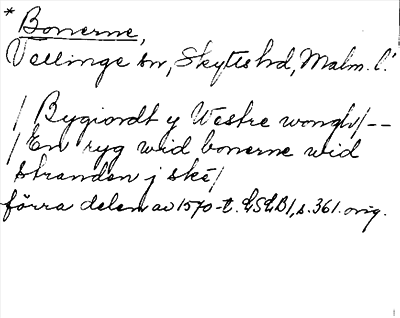 * Bonerne,
Vellinge sn, Skytts hd, Malm. l.
/ Bygiordt y Westre wongh / --
/ En ryg wid bonerne wid
stranden j ske /
förra delen av 1570-t. LSLB1, s. 361. orig.